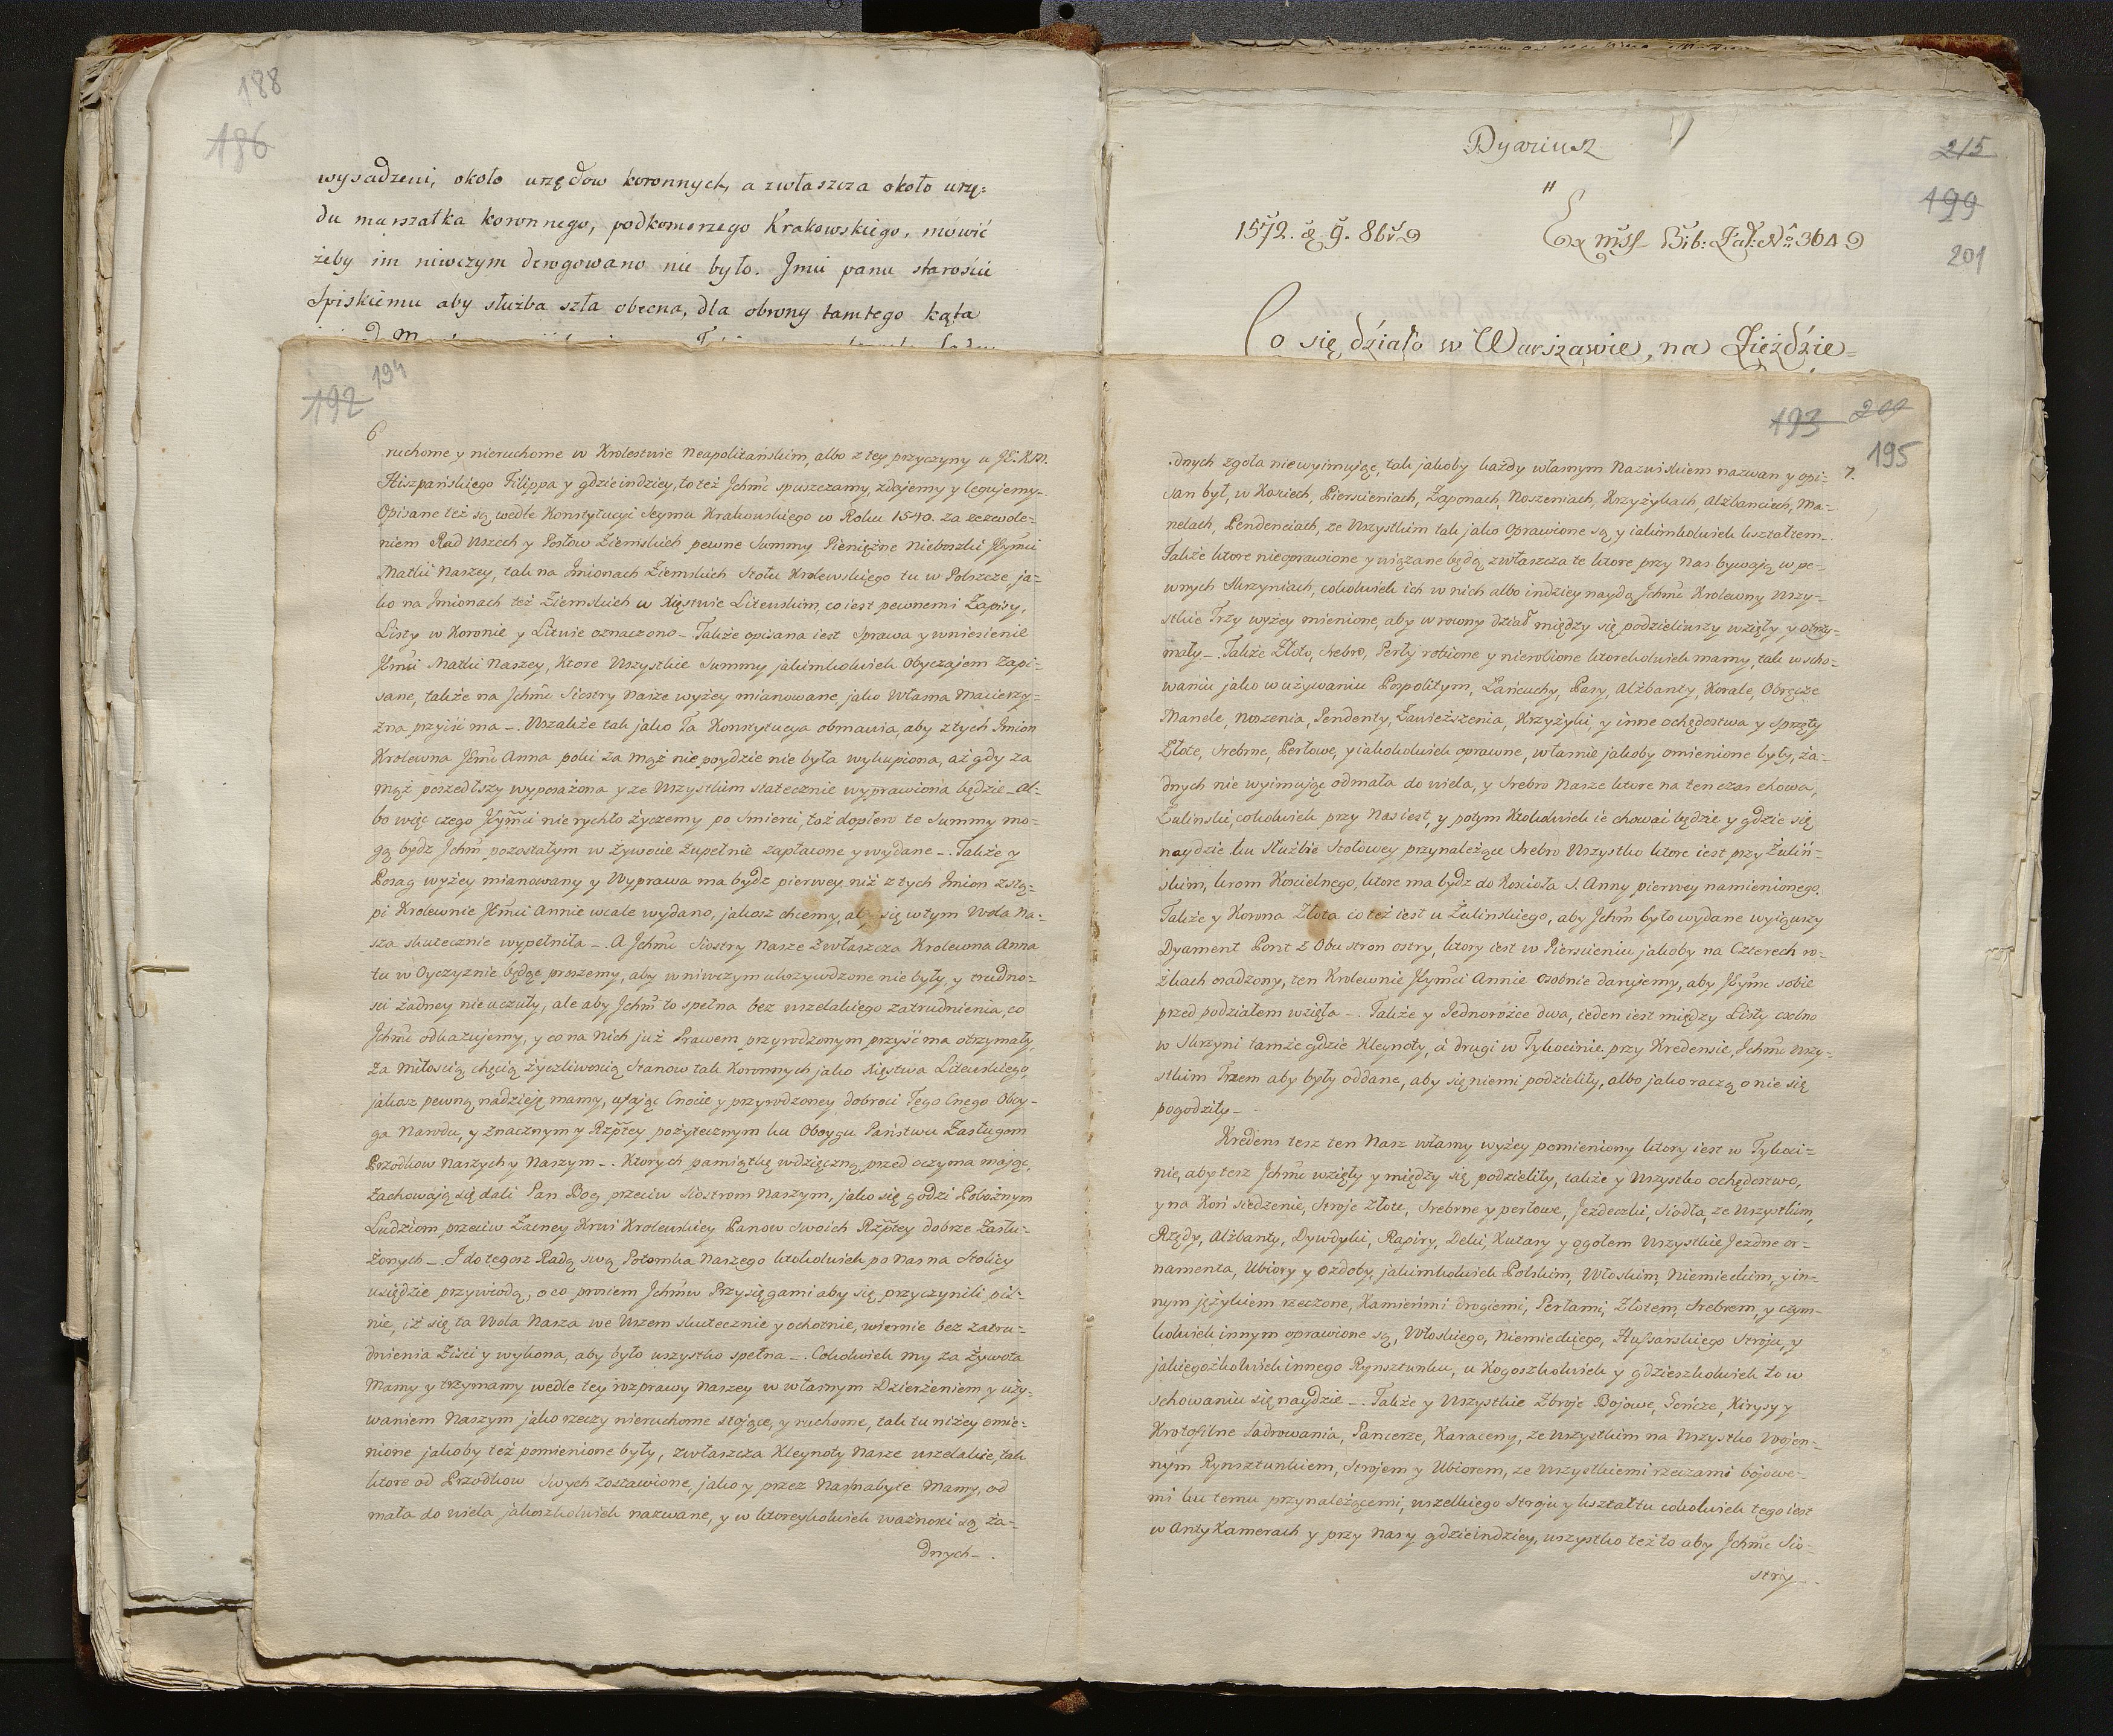 188
186
wysadzeni, około urzędow koronnych, a zwłaszcza około urzę:
du marszałka koronnego, podkomorzego Krakowskiego, mowić
żeby im niwczym derogowano nie było. Jmći panu starościе
Spiskiemu aby służba szła obecna, dla obrony tamtego kąta
Dyariusz
215
199
201
1572. 9. 8br
Ex Mss Bib: Zał: No 304
Co się działo w Warszawie, na Zieździe=
192
194
6
ruchome y nieruchome w Krolestwie Neapolitańskim, albo z tey przyczyny u JE. KM.
Hiszpańskiego Filippa y gdzieindziey, to też Jchmć spuszczamy, zdajemy y legujemy.
Opisane też są wedle Konstytucyi Seymu Krakowskiego w Roku 1540. za zezwole=
niem Rad wszech y Posłow Ziemskich pewne Summy Pieniężne Nieboszki JKymći
Matki Naszey, tak na Jmionach Ziemskich Stołu Krolewskiego tu w Polszcze, ja=
ko na Jmionach też Ziemskich w Xięstwie Litewskim, co iest pewnemi Zapisy,
Listy w Koronie y Litwie oznaczono _ Także opisana iest Sprawa y wniesienie
JKmći Matki Naszey, Ktore Wszystkie Summy jakimkolwiek Obyczajem Zapi=
sane, także na Jchmć Siostry Nasze wyżey mianowane, jako Własna Macierzy=
zna przyiść ma _. Wszakże tak jako Ta Konstytucya obmawia, aby z tych Jmion
Krolewna JKmć Anna poki za mąż nie poydzie nie była wykupiona, aż gdy za
mąż poszedłszy wyposażona y ze Wszystkim statecznie wyprawiona będzie _ al=
bo więc czego JKymći nierychło życzemy po Smierci, toż dopiero te Summy mo=
gą bydz Jchm pozostałym w żywocie Zupełnie zapłacone y wydane _. Także y
Posag wyżey mianowany y Wyprawa ma bydz pierwey niż z tych Jmion zstą=
pi Krolewnie JKmći Annie wcale wydano, jakosz chcemy, aby się w tym Wola Na=
sza skutecznie wypełniła _. A Jchmć Siostry Nasze Zwłaszcza Krolewna Anna
tu w Oyczyznie będąc proszemy, aby w niwczym ukrzywdzone nie były, y trudno=
sci żadney nie uczuły, ale aby Jchm to spełna bez wszelakiego zatrudnienia, co
Jchmć odkazujemy, y co na Nich już Prawem przyrodzonym przyść ma otrzymały,
Za miłoscią chęcią życzliwoscią Stanow tak Koronnych jako Xięstwa Litewskiego,
jakosz pewną nadzieję mamy, ufając Cnocie y przyrodzoney dobroci Tego Cnego Oboy=
ga Narodu, y znacznym y Rzptey pożytecznym ku Oboygu Państwu Zasługom
Przodkow Naszych y Naszym _. Ktorych pamiątkę wdzięczną przed oczyma mając,
Zachowają się dali Pan Bog przeciw Siostrom Naszym, jako się godzi Pobożnym
Ludziom, przeciw Zacney Krwi Krolewskiey Panow Swoich Rzptey dobrze Zasłu=
żonych _. I do tegosz Radą swą Potomka Naszego ktokolwiek po Nas na Stolicy
usiędzie przywiodą, o co prosiem Jchmw Przysięgami aby się przyczynili pil=
nie, iż się ta Wola Nasza we Wszem skutecznie y ochotnie, wiernie bez zatru=
dnienia Ziści y wykona, aby było wszystko spełna _. Cokolwiek my za Żywota
Mamy y trzymamy wedle tey rozprawy Naszey w własnym Dzierżeniem y uży=
waniem Naszym jako rzeczy nieruchome stojące, y ruchome, tak tu niżey omie=
nione jakoby też pomienione były, zwłaszcza Kleynoty Nasze wszelakie, tak
ktore od Przodkow Swych zostawione, jako y przez Nas nabyte Mamy, od
mała do wiela jakoszkolwiek nazwane, y w ktoreykolwiek ważności są ża=
dnych _.
193
209
195
7.
dnych zgoła niewyimując, tak jakoby każdy własnym Nazwiskiem nazwan y opi=
san był, w Kosiech, Pierscieniach, Zaponach, Noszeniach, Krzyżykach, Alżbanciech, Ma=
nelach, Pendenciach, ze Wszystkim tak jako Oprawione są, y iakimkolwiek kształtem _.
Także ktore nieoprawione y wiązane będą, zwłaszcza te ktore przy Nas bywają w pe=
wnych Skrzyniach, cokolwiek ich w nich albo indziey naydą Jchmć Krolewny Wszy=
stkie Trzy wyżey mienione, aby w rowny dział między się podzieliwszy wzięły, y otrzy=
mały _. Także Złoto, Srebro, Perły robione y nierobione ktorekolwiek mamy, tak w scho=
waniu jako w używaniu Pospolitym, Łańcuchy, Pasy, Alżbanty, Korale, Obręcze
Manele, Noszenia, Pendenty, Zawieższenia, Krzyżyki, y inne ochędostwa y Sprzęty
Złote, Srebrne, Perłowe, y iakokolwiek oprawne, własnie jakoby omienione były, ża=
dnych nie wyimując odmała do wiela, y Srebro Nasze ktore na ten czas chowa,
Żulinski, cokolwiek przy Nas iest, y potym Ktokolwiek ie chować będzie y gdzie się
naydzie ku Służbie Stołowey przynależące Srebro Wszystko ktore iest przy Żuliń=
skim, krom Koscielnego, ktore ma bydz do Koscioła S. Anny pierwey namienionego.
Także y Korona Złota co też iest u Żulinskiego, aby Jchm było wydane wyiąwszy
Dyament Pont z Obu stron ostry, ktory iest w Pierscieniu jakoby na Czterech ro=
żkach osadzony, ten Krolewnie JKymći Annie osobnie darujemy, aby JKymć sobie
przed podziałem wzięła _. Także y Jednorożce dwa, ieden iest między Listy
w Skrzyni tamże gdzie Kleynoty, á drugi w Tykocinie przy Kredensie, Jchmć wszy=
stkim Trzem aby były oddane, aby się niemi podzieliły, albo jako raczą o nie się
pogodziły _
Kredens tesz ten Nasz własny wyżey pomieniony ktory iest w Tykoci=
nie, aby tesz Jchmć wzięły y między się podzieliły, także y Wszystko ochędostwo,
y na Koń siedzenie, Stroje Złote, Srebrne y perłowe, Jezdeczki, Siodła, ze Wszystkim,
Rzędy, Alżbanty, Dywdyki, Rapiry, Deki, Kutasy y ogołem Wszystkie Jezdne or=
namenta, Ubiory y ozdoby, jakimkolwiek Polskim, Włoskim, Niemieckim, y in=
nym językiem rzeczone, Kamieńmi drogiemi, Perłami, Złotem, Srebrem, y czym=
kolwiek innym oprawione są, Włoskiego, Niemieckiego, Hussarskiego Stroju, y
jakiegożkolwiek innego Rynsztunku, u Kogoszkolwiek y gdzieszkolwiek to w
schowaniu się naydzie _. Także y Wszystkie Zbroje Bojowe, Gończe, Kirysy y
Krotofilne ladrowania, Pancerze, Karaceny, ze wszystkim na Wszystko Wojen=
nym Rynsztunkiem, Strojem y Ubiorem, ze Wszystkiemi rzeczami bojowe=
mi ku temu przynależącemi, wszelkiego Stroju y kształtu cokolwiek tego iest
w Antykamerach y przy Nas y gdzieindziey, wszystko też to aby Jchmć Sio=
stry